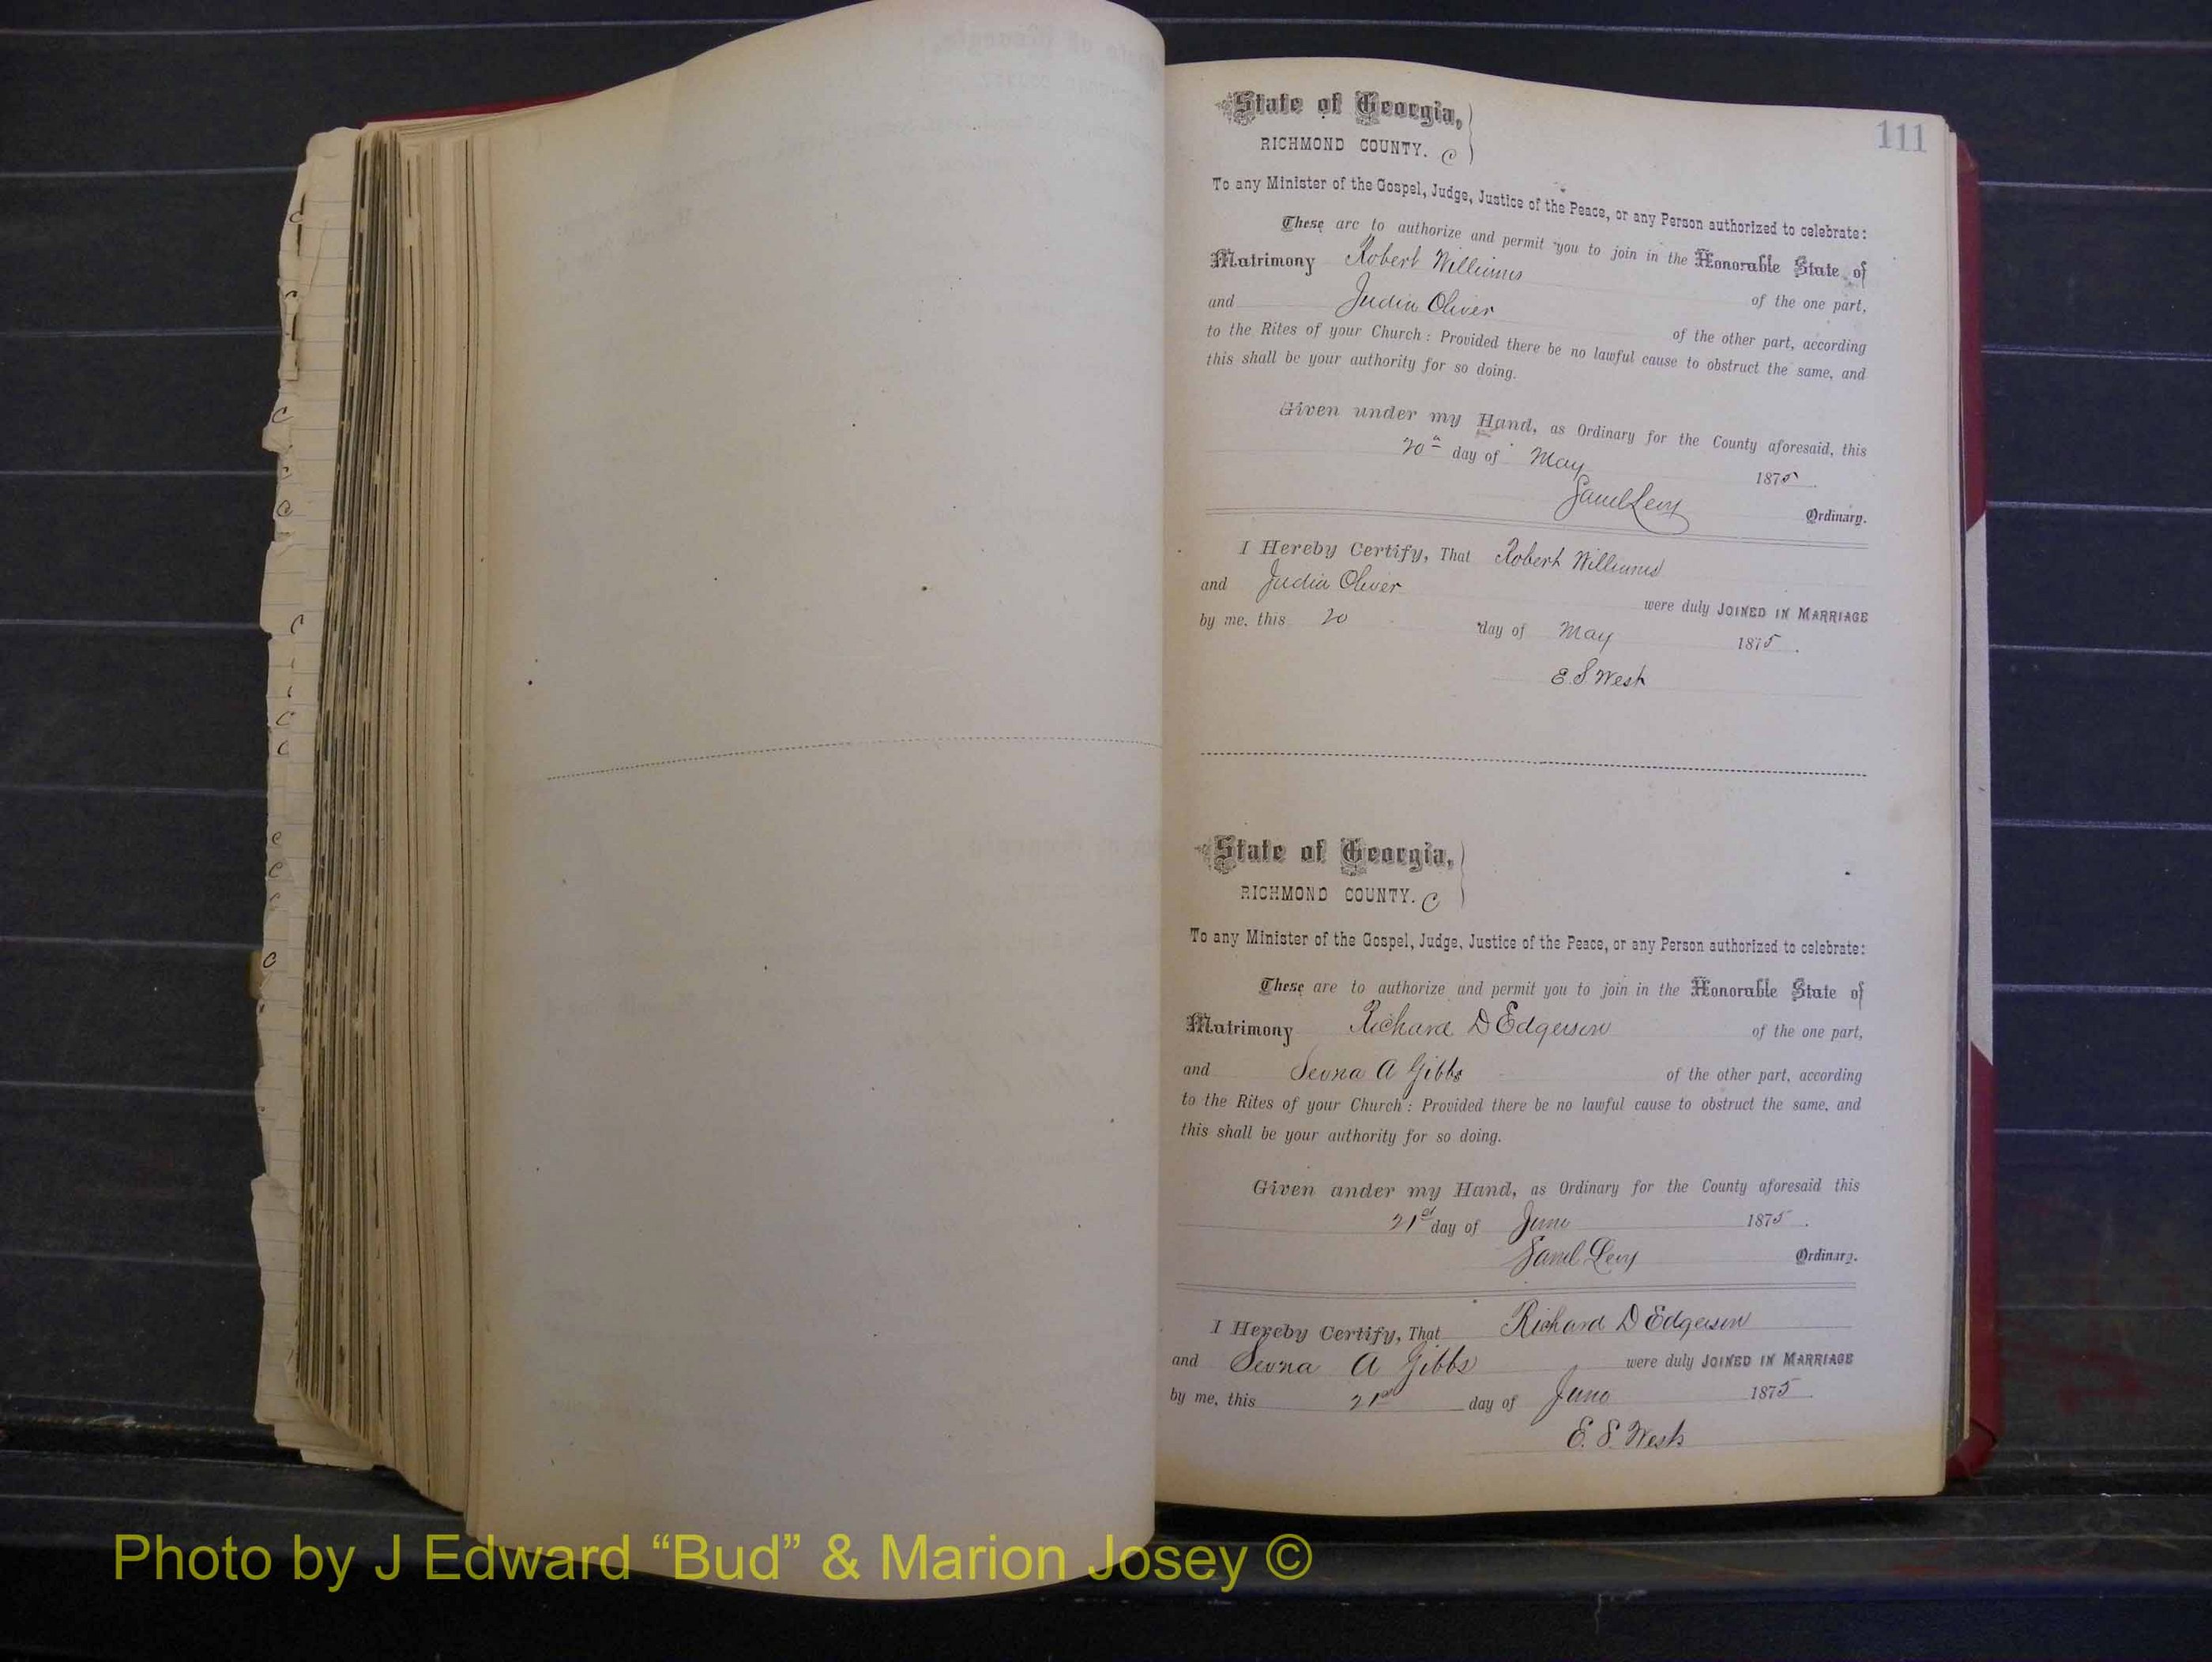 111
State of Georgia,
RICHMOND COUNTY. C
To any Minister of the Gospel, Judge, Justice of the Peace, or any Person authorized to celebrate:
These are to authorize and permit you to join in the Honorable State of
Matrimony Robert Williams of the one part,
and Judia Oliver of the other part, according
to the Rites of your Church: Provided there be no lawful cause to obstruct the same, and
this shall be your authority for so doing.
Given under my Hand, as Ordinary for the County aforesaid, this
20th day of May 1875.
Saml Levy Ordinary.
I Hereby Certify, That Robert Williams
and Judia Oliver were duly JOINED IN MARRIAGE
by me, this 20 day of May 1875.
E. S. West
State of Georgia,
RICHMOND COUNTY. C
To any Minister of the Gospel, Judge, Justice of the Peace, or any Person authorized to celebrate:
These are to authorize and permit you to join in the Honorable State of
Matrimony Richard D Edgerson of the one part,
and A Gibbs of the other part, according
to the Rites of your Church: Provided there be no lawful cause to obstruct the same, and
this shall be your authority for so doing.
Given under my Hand, as Ordinary for the County aforesaid this
21st day of June 1875.
Saml Levy Ordinary.
I Hereby Certify, That Richard D Edgerson
and A Gibbs were duly JOINED IN MARRIAGE
by me, this 21st day of June 1875
E. S. West
Photo by J Edward “Bud” & Marion Josey ©